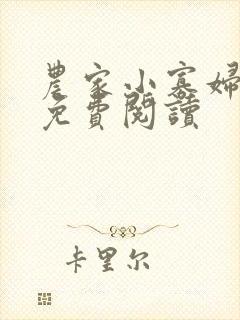 農家小寡婦
免費閱讀
卡里尔